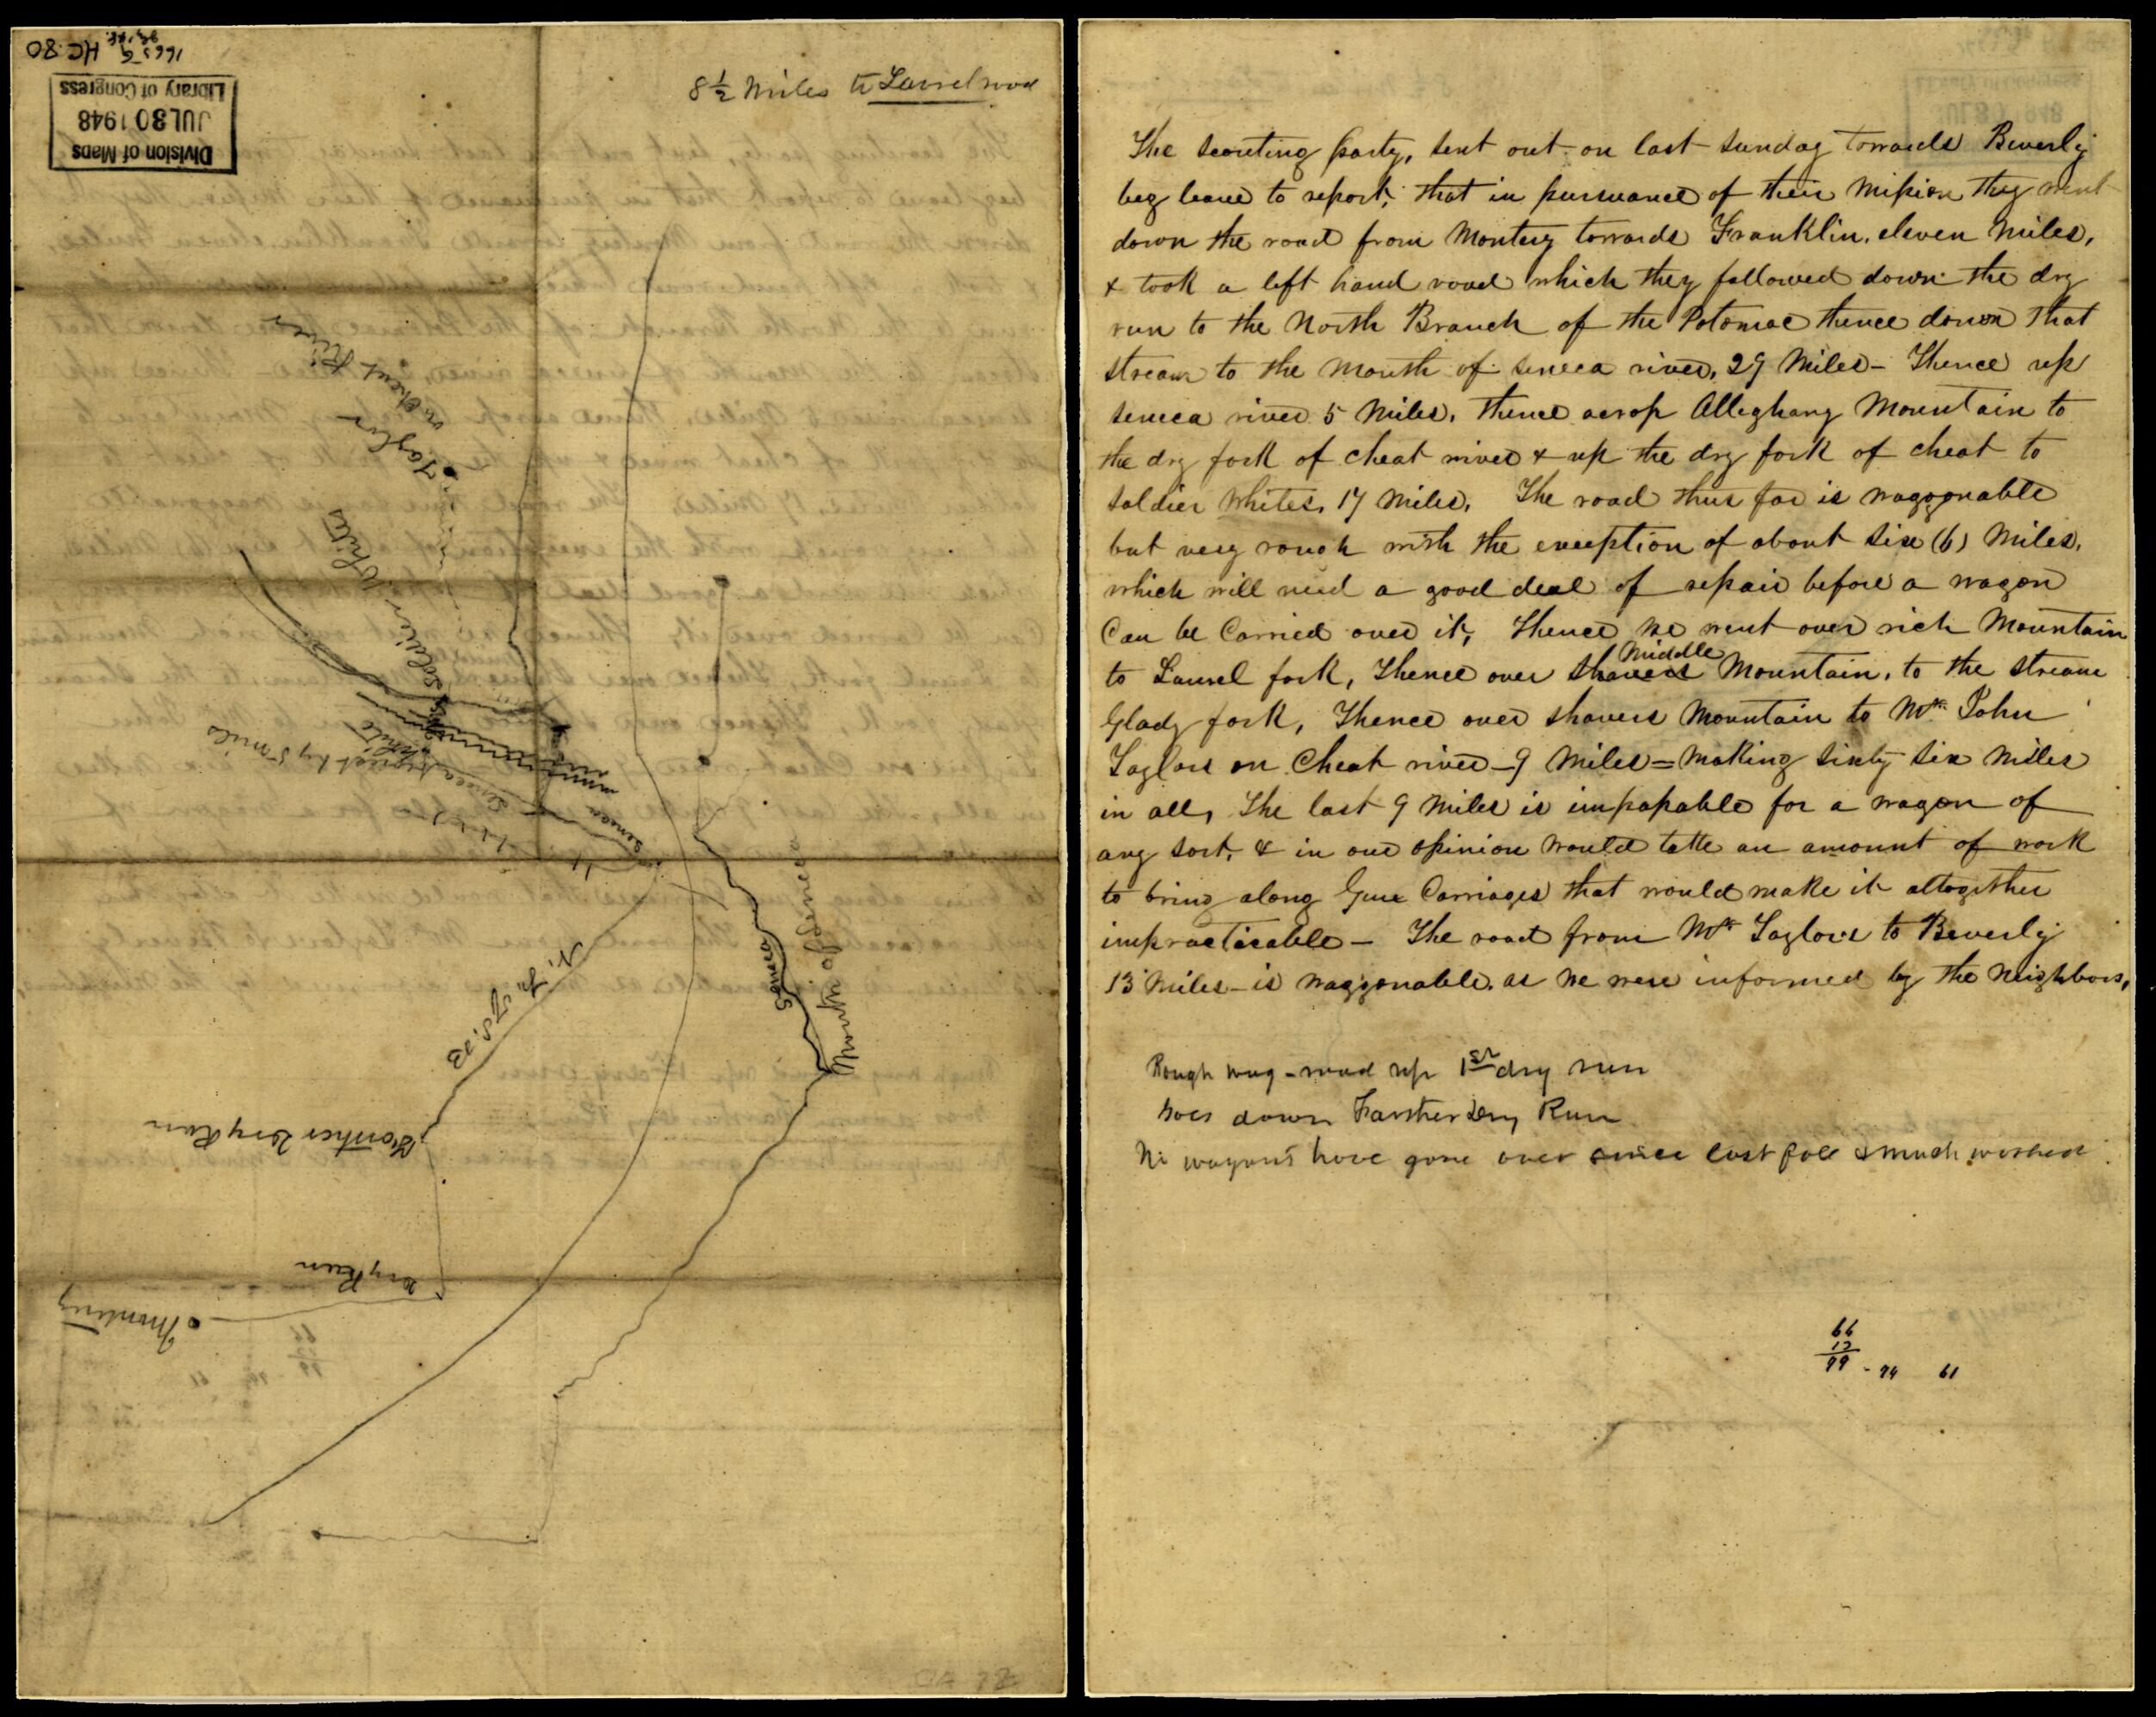 8 1/2 Miles to Laurel
1665 G HC.80
Division of Maps
JUL 30 1948
Library of Congress
Taylor
on Cheat River
Soldier Whites
Seneca
by 5 miles
Seneca
Mouth of Seneca
Farther Dry Run
Dry Run
Monterey
The scouting party, sent out on last sunday towards Beverly
beg leave to report, that in pursuance of their Mission they went
down the road from Montery towards Franklin, eleven Miles,
& took a left hand road which they followed down the dry
run to the North Branch of the Potomac thence down that
stream to the Mouth of Seneca river, 29 Miles - Thence up
Seneca river 5 Miles, thence across Alleghany Mountain to
the dry fork of Cheat river & up the dry fork of cheat to
Soldier Whites, 17 Miles, The road thus far is waggonable
but very rough with the exception of about Six (6) Miles,
which will need a good deal of repair before a wagon
Can be Carried over it, Thence we went over rich Mountain
to Laurel fork, Thence over Shavers Middle Mountain, to the stream
Glady fork, Thence over Shavers Mountain to Mr. John
Taylors on Cheat river - 9 Miles = Making Sixty Six Miles
in all, The last 9 Miles is impassable for a wagon of
any sort, & in our opinion would take an amount of work
to bring along Gun Carriages that would make it altogether
impracticable - The road from Mr Taylors to Beverly
13 Miles - is waggonable, as we were informed by the Neighbors,
Rough wag - road up 1st dry run
down Farther Dry Run
No wagons have gone over since last fall & much washed
66
13
79 - 74 61